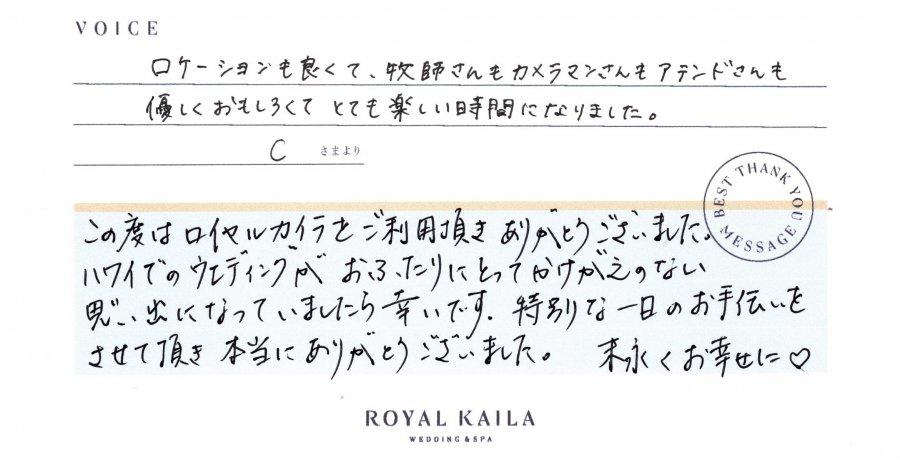 VOICE
ロケーションも良くて、牧師さんもカメラマンさんもアテンドさんも
優しくおもしろくて とても楽しい時間になりました。
C さまより
BEST THANK YOU MESSAGE
この度はロイヤルカイラをご利用頂きありがとうございました。
ハワイでのウエディングが おふたりにとってかけがえのない
思い出になっていましたら幸いです. 特別な一日のお手伝いを
させて頂き 本当にありがとうございました。 末永くお幸せに♡
ROYAL KAILA
WEDDING & SPA